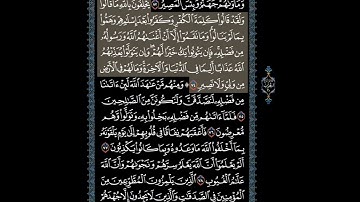 وَمَأْوَىٰهُمْ جَهَنَّمُ وَبِئْسَ ٱلْمَصِيرُ ٧٣ يَحْلِفُونَ بِٱللَّهِ مَا قَالُوا۟
وَلَقَدْ قَالُوا۟ كَلِمَةَ ٱلْكُفْرِ وَكَفَرُوا۟ بَعْدَ إِسْلَٰمِهِمْ وَهَمُّوا۟
بِمَا لَمْ يَنَالُوا۟ وَمَا نَقَمُوٓا۟ إِلَّآ أَنْ أَغْنَىٰهُمُ ٱللَّهُ وَرَسُولُهُۥ
مِن فَضْلِهِۦ فَإِن يَتُوبُوا۟ يَكُ خَيْرًا لَّهُمْ وَإِن يَتَوَلَّوْا۟ يُعَذِّبْهُمُ
ٱللَّهُ عَذَابًا أَلِيمًا فِى ٱلدُّنْيَا وَٱلْءَاخِرَةِ وَمَا لَهُمْ فِى ٱلْأَرْضِ
مِن وَلِىٍّ وَلَا نَصِيرٍ ٧٤ ۞ وَمِنْهُم مَّنْ عَٰهَدَ ٱللَّهَ لَئِنْ ءَاتَىٰنَا
مِن فَضْلِهِۦ لَنَصَّدَّقَنَّ وَلَنَكُونَنَّ مِنَ ٱلصَّٰلِحِينَ
٧٥ فَلَمَّآ ءَاتَىٰهُم مِّن فَضْلِهِۦ بَخِلُوا۟ بِهِۦ وَتَوَلَّوا۟ وَّهُم
مُّعْرِضُونَ ٧٦ فَأَعْقَبَهُمْ نِفَاقًا فِى قُلُوبِهِمْ إِلَىٰ يَوْمِ يَلْقَوْنَهُۥ
بِمَآ أَخْلَفُوا۟ ٱللَّهَ مَا وَعَدُوهُ وَبِمَا كَانُوا۟ يَكْذِبُونَ ٧٧
أَلَمْ يَعْلَمُوٓا۟ أَنَّ ٱللَّهَ يَعْلَمُ سِرَّهُمْ وَنَجْوَىٰهُمْ وَأَنَّ ٱللَّهَ
عَلَّٰمُ ٱلْغُيُوبِ ٧٨ ٱلَّذِينَ يَلْمِزُونَ ٱلْمُطَّوِّعِينَ مِنَ
ٱلْمُؤْمِنِينَ فِى ٱلصَّدَقَٰتِ وَٱلَّذِينَ لَا يَجِدُونَ إِلَّا جُهْدَهُمْ